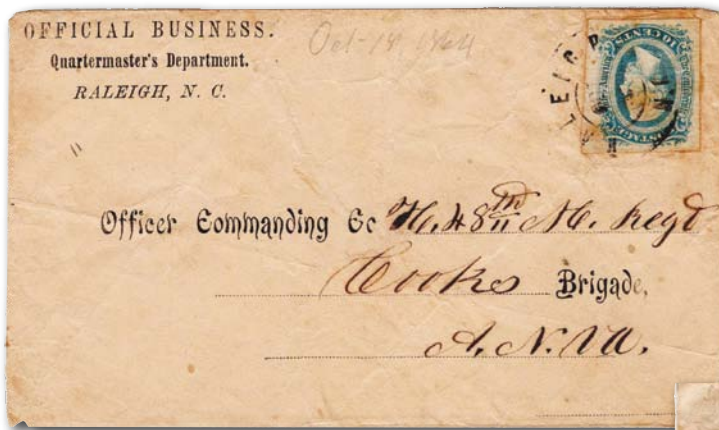 OFFICIAL BUSINESS.
Quartermaster's Department.
RALEIGH, N. C.
Oct 18, 1864
10 CENTS
POSTAGE
RALEIGH N.C.
Officer Commanding Co H. 48th N. C. Regt
Cookes Brigade,
A. N. Va.